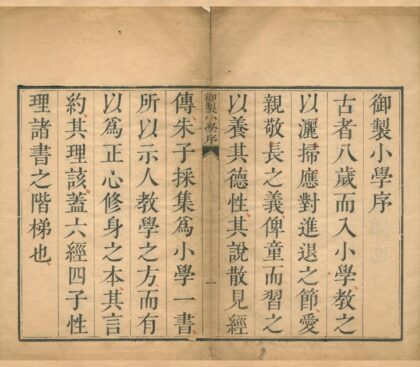 御製小學序
古者八歲而入小學教之
以灑掃應對進退之節愛
親敬長之義俾童而習之
以養其德性其說散見經
御製小學序
一
傳朱子採集為小學一書
所以示人教學之方而有
以為正心修身之本其言
約其理該蓋六經四子性
理諸書之階梯也